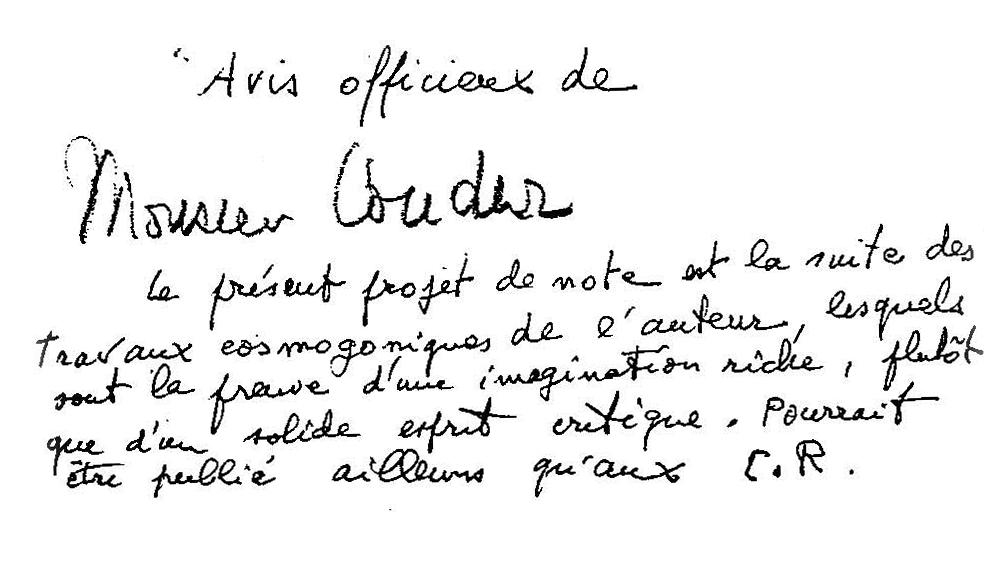 "Avis officieux de
Monsieur Couder
Le présent projet de note est la suite des
travaux cosmogoniques de l'auteur, lesquels
sont la preuve d'une imagination riche, plutôt
que d'un solide esprit critique. Pourrait
être publié ailleurs qu'aux C.R.